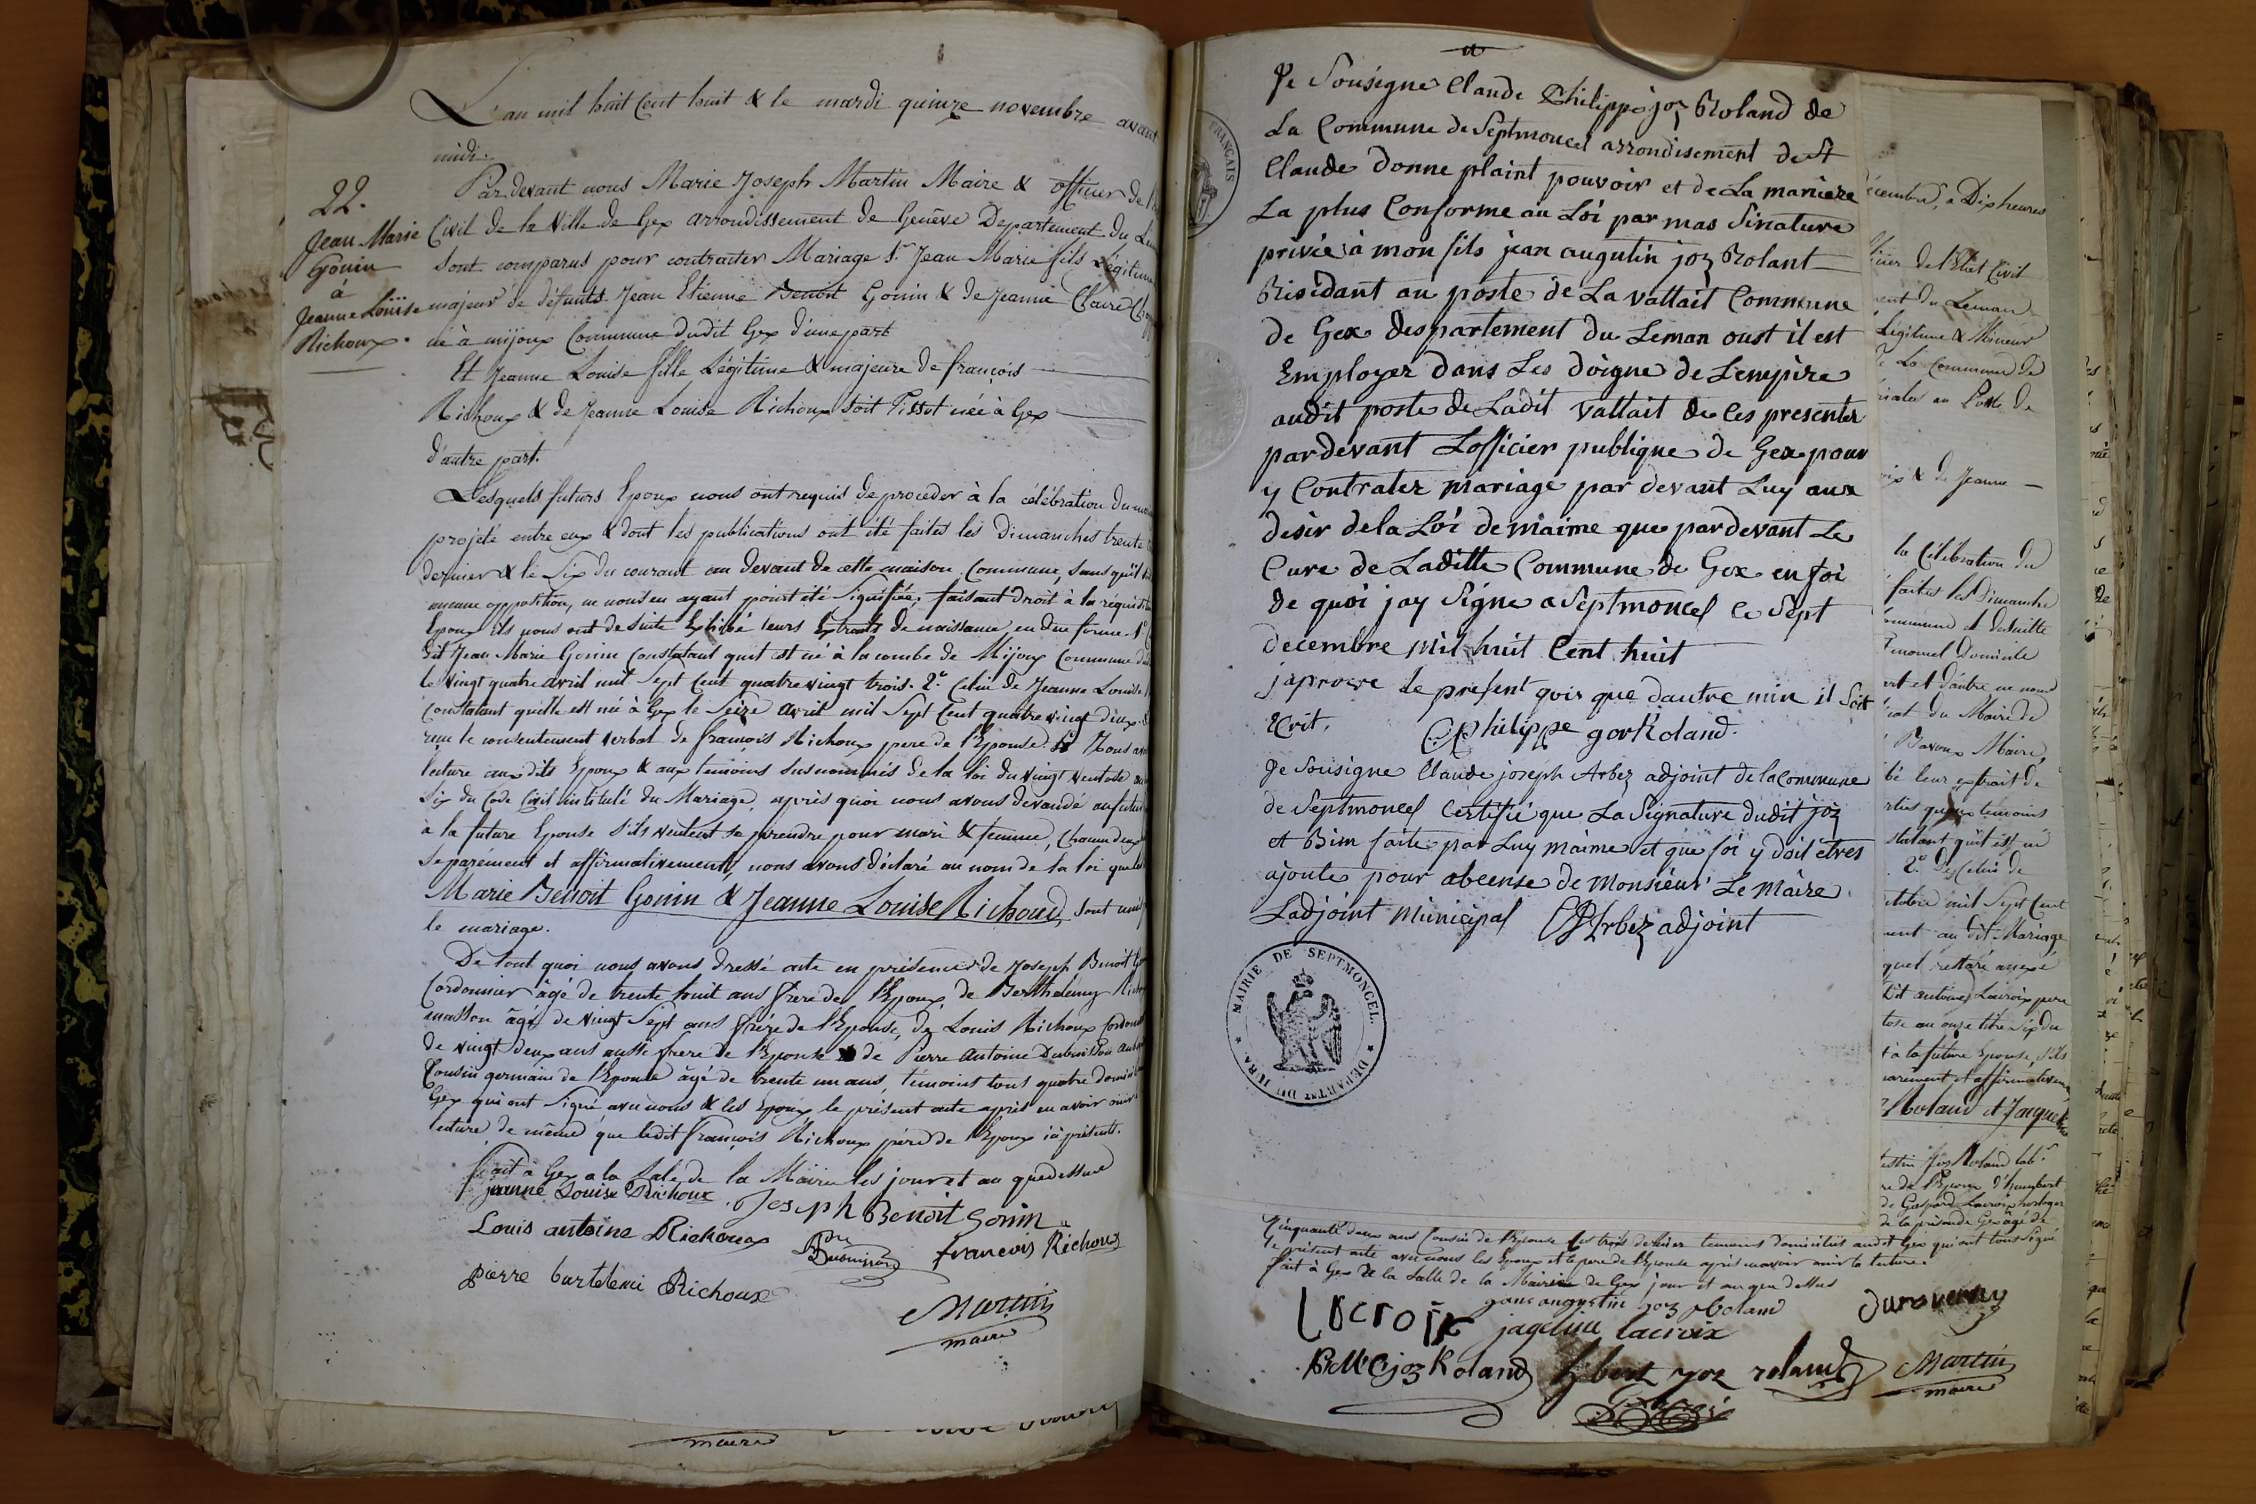 L'an mil huit Cent huit & le mardi quinze novembre avant
midi.
22.
Jean Marie
Gonin
à
Jeanne Louise
Richoux.
Par devant nous Marie Joseph Martin Maire & officier de
Civil de la Ville de Gex arrondissement de Genêve Departement du
sont comparus pour contracter Mariage Sr. Jean Marie fils légitime
majeur de défunts Jean Etienne Benoit Gonin & de Jeanne Claire
né à mijoux Commune dudit Gex d'une part
Et Jeanne Louise fille Légitime & majeure de françois
Richoux & de Jeanne Louise Richoux soit Pisset née à Gex
d'autre part.
Lesquels futurs Epoux nous ont requis de proceder à la célébration du
projeté entre eux & dont les publications ont été faites les Dimanches trente
dernier & le Six du courant au devant de cette maison Commune, sans qu'il
aucune opposition, ne nous en ayant point été Signifiée, faisant droit à la
Epoux ils nous ont de suite Exhibé leurs Extraits de naissance en due forme. 1°
dit Jean Marie Gonin Constatant qu'il est né à la combe de Mijoux Commune
le vingt quatre avril mil Sept Cent quatre vingt trois. 2° Celui de Jeanne Louise
Constatant qu'elle est née à Gex le Seize avril mil Sept Cent quatre vingt deux
le consentement verbal de françois Richoux pere de l'Epouse. Nous
lecture aux dits Epoux & aux temoins susnommés de la loi du vingt ventose
Six du Code Civil intitulé du Mariage, après quoi nous avons demandé au futur
à la future Epouse s'ils veulent se prendre pour mari & femme, Chacun d'eux
Separément et affirmativement, nous avons déclaré au nom de la loi que
Marie Benoit Gonin & Jeanne Louise Richoux, sont unis
le mariage.
De tout quoi nous avons dressé acte en présence de Joseph Benoit
Cordonnier âgé de trente huit ans frere de l'Epoux, de Berthelemy
masson âgé de vingt Sept ans frère de l'Epouse, de Louis Richoux
de vingt deux ans aussi frere de l'Epouse & de Pierre Antoine Dubuisson
Cousin germain de l'Epouse âgé de trente un ans, témoins tous quatre
Gex qui ont Signé avec nous & les Epoux le présent acte après en avoir
lecture de même que ledit françois Richoux père de l'Epoux ici présent.
fait à Gex a la Sale de la Mairie les jour et an que dessus
jeanne Louise Richoux Joseph Benoit Gonin
Louis antoine Richoux francois Richoux
Dubuisson
pierre bartelemi Richoux
Martin
maire
maire
Je Sousigne Claude Philippe joz Roland de
La Commune de Septmoncel arrondisement de St
Claude donne plaint pouvoir et de La maniere
La plus Conforme au Loi par mas Sinature
privée à mon fils jean augutin joz Rolant
Risidant au poste de La vattait Commune
de Gex despartement du Leman oust il est
Employer dans Les doigne de Lempire
audit poste de Ladit vattait de Ces presenter
pardevant Lofficier publique de Gex pour
y Contrater mariage par devant Luy aux
desir de la Loi de maime que pardevant Le
Cure de Laditte Commune de Gex en foi
de quoi jay Signe a Septmoncel ce Sept
decembre mil huit Cent huit
japrove le present quois que dautre min il Soit
Ecrit,
C. Philippe goz Roland.
Je Sousigne Claude joseph Arbez adjoint de la Commune
de Septmoncel Certifie que La Signature dudit joz
et Bien faite par Luy maime et que foi y doit etres
ajoute pour abcense de Monsieur Le maire
Ladjoint municipal CJ Arbez adjoint
FRANÇAIS
MAIRIE DE SEPTMONCEL.
DEPARTNT DU JURA
a Dix heures
de l'Etat Civil
du Leman
Legitime & Mineur
La Commune de
au Poste de
& de Jeanne
la Célébration du
faites les Dimanche
Commune et de
Domicile
et d'autre ne nous
du Maire de
Maire
leur extrait de
temoins
qu'il est né
2° De Celui de
mil Sept Cent
au dit Mariage
quel restera annexé
Dit antoine Lacroix pere
au onze titre Six du
à la future Epouse, s'ils
et affirmativement
Roland et Jaqueline
Joz Roland lab.
de l'Epoux d'humbert
de Gaspard Lacroix horloger
de la présente Gex âgé de
Cinquante deux ans Cousin de l'Epouse les trois dernier temoins domiciliés audit Gex qui ont tous Signé
le présent acte avec nous les Epoux et le pere de l'Epouse après en avoir ouir la lecture.
fait à Gex & la Salle de la Mairie de Gex jour et an que dessus
jans augustin joz Roland
Lacroix jaqeline lacroix Duraverney
joz Roland joz roland
Martin
maire